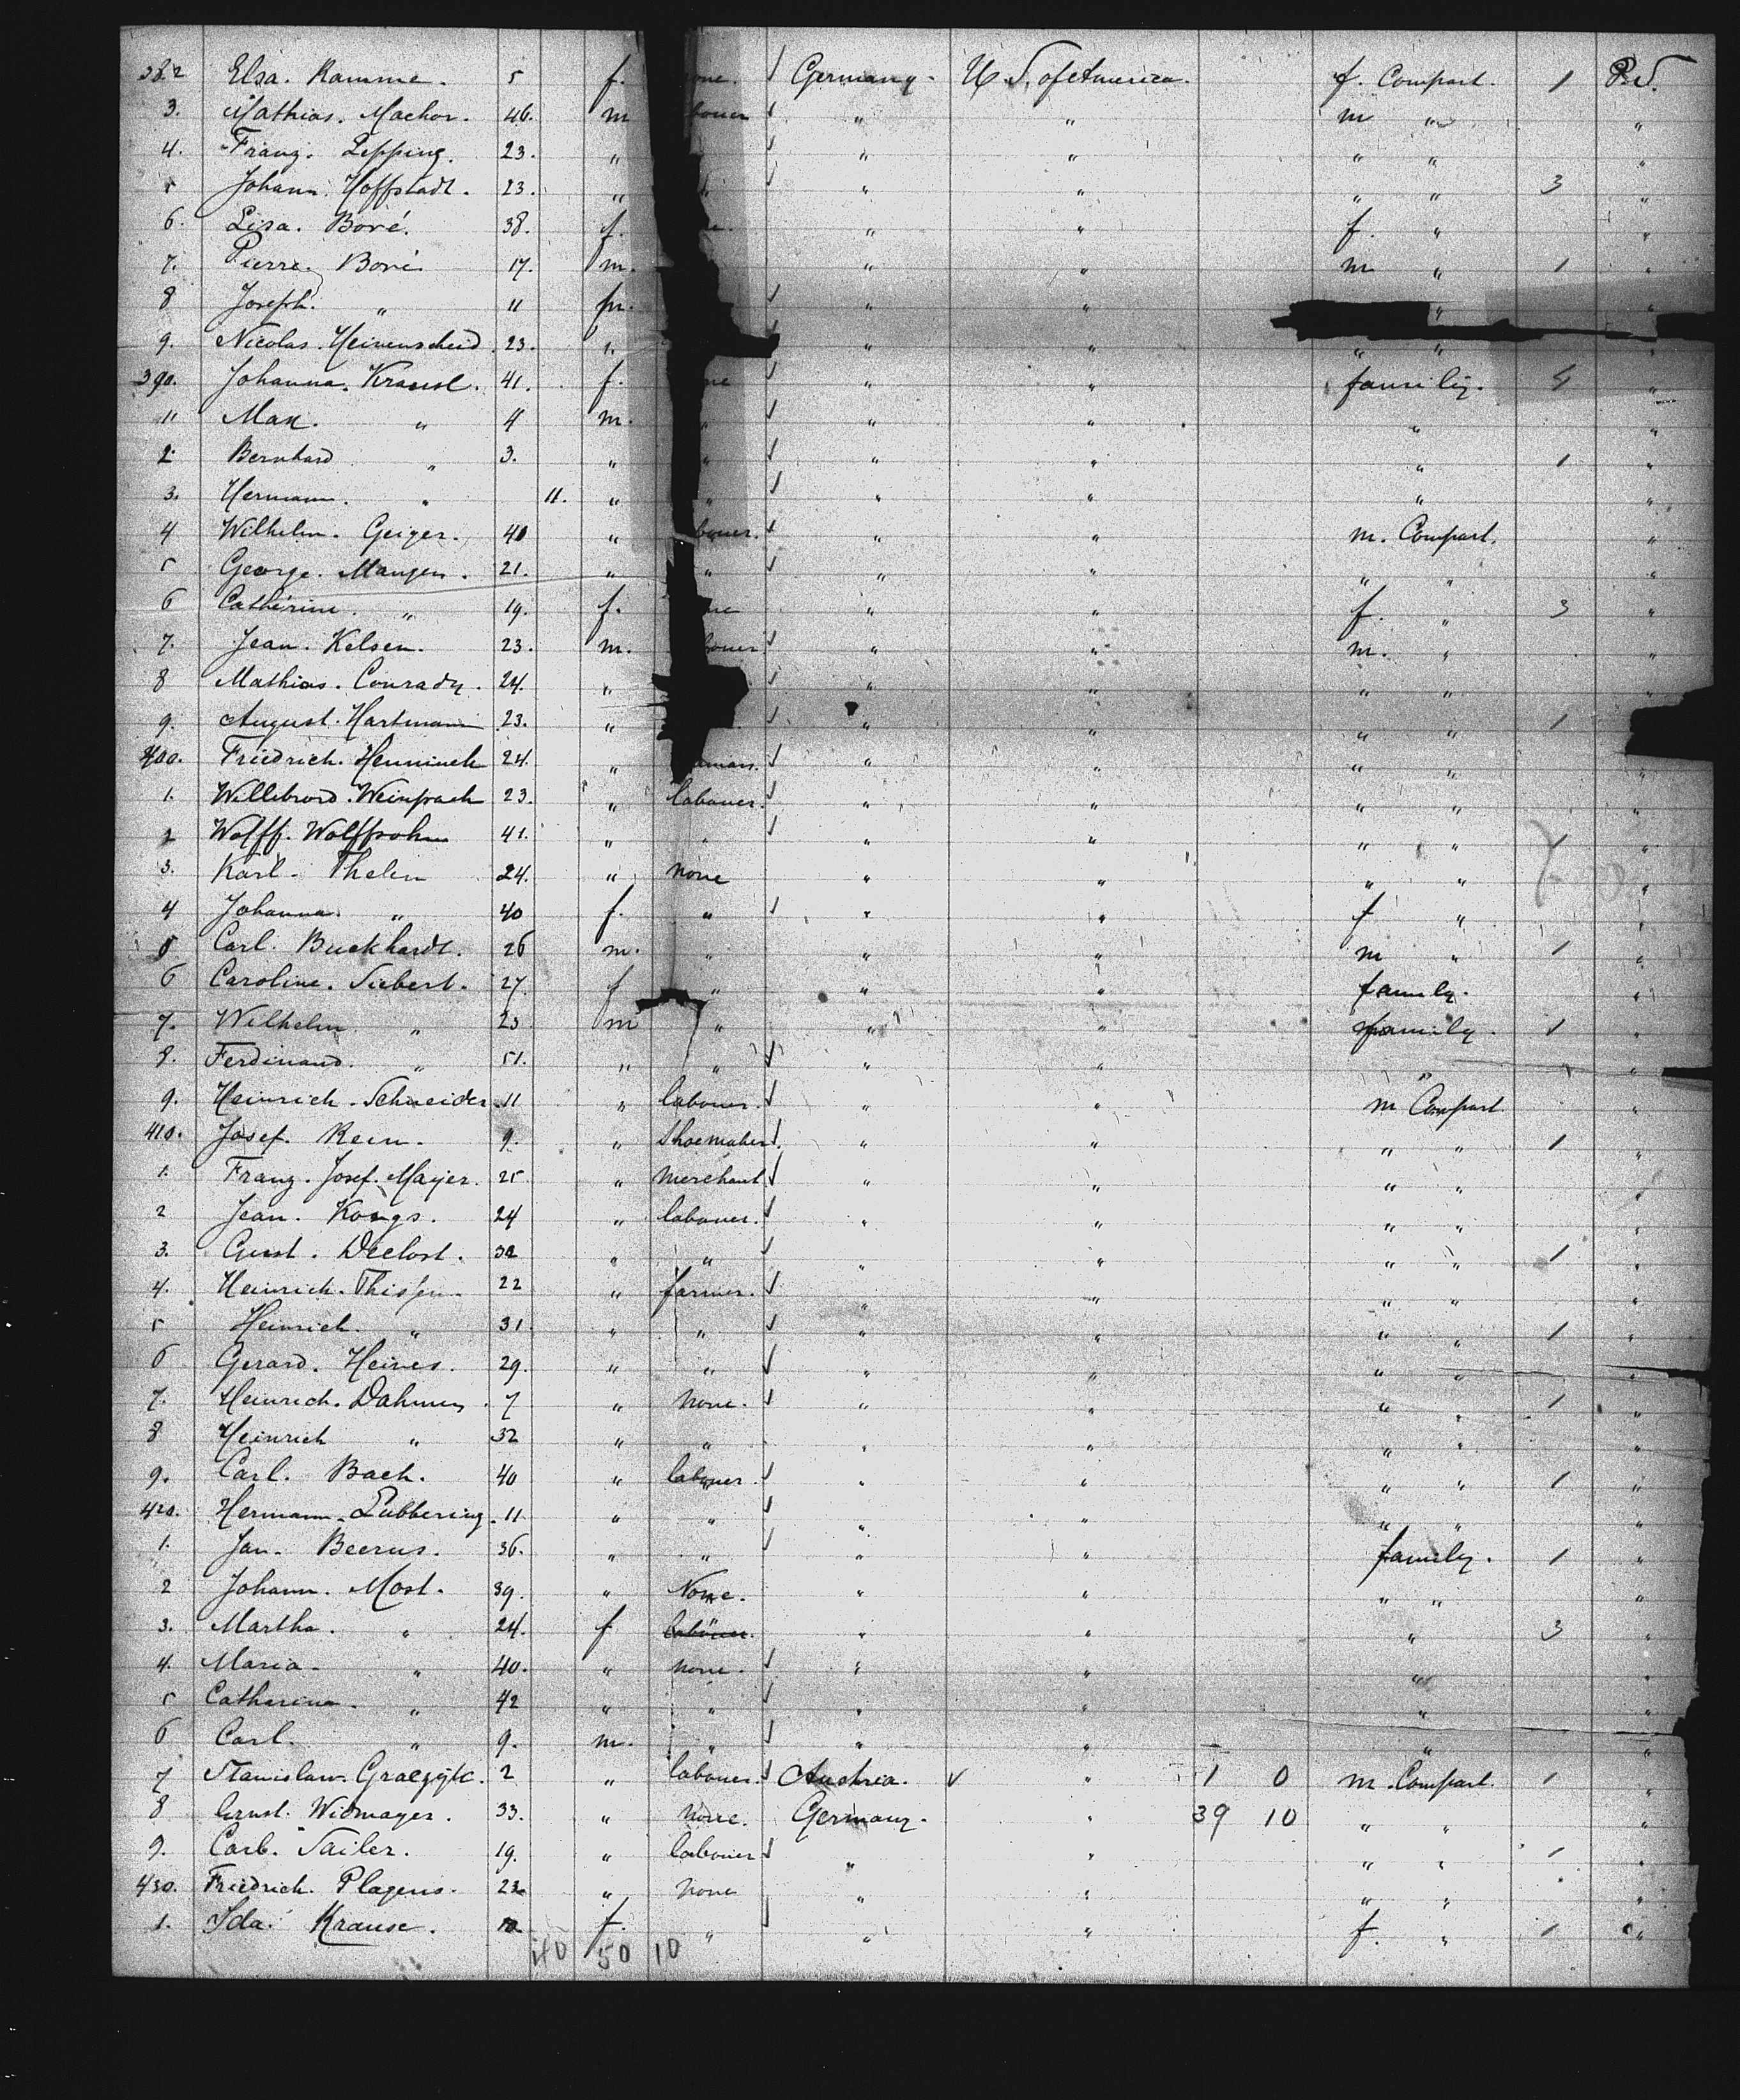 382 Elsa. Ramme. 5 f. one. Germany. U.S. of America. f. Compart. 1 P.d.
3. Mathias. Machor. 46. m bouer " " m " "
4. Franz. Lepping. 23. " " " " " "
5 Johann. Hoffstadt. 23. " " " " " 3 "
6. Lisa. Boré. 38. f. e. " " f. " "
7. Pierre. Boré. 17. m. " " m " 1 "
8 Joseph. " 11 m. " " " "
9. Nicolas. 23. " " " " " "
390. Johanna. Krausl. 41. f. ne " " family. "
11 Max. " 4 m. " " " " "
2. Bernhard " 3. " " " " " 1 "
3. Hermann. " 11. " " " " " "
4 Wilhelm. Geiger. 40 " bouer. " " m. Compart. "
5 George. Mangen. 21. " " " " " " "
6 Cathérine. " 19. f. ne " " f. " 3 "
7. Jean. Kelsen. 23. m. bouer. " " m. " "
8 Mathias. Conrady. 24. " " " " " "
9. August. Hartmann 23. " " " " " 1
400. Friedrich. 24. " " " " " "
1. Willebrord. 23. " labouer. " " " " "
2 Wolff. Wolffsohn 41. " " " " " " 1 "
3. Karl. Thelen 24. " none " " " " "
4 Johanna. " 40 f. " " " f " "
5. Carl. Buckhardt. 26 m. " " " m " 1 "
6 Caroline. Siebert. 27. f " " " family. "
7. Wilhelm " 23 m " " " family. 1 "
8. Ferdinand. " 51. " " " " " "
9. Heinrich. Schneider. 11 " labouer. " " m Compart "
410. Josef. Rein. 9. " Shoemaker. " " " " 1 "
1. Franz. Josef. Mayer. 25. " merchant " " " " "
2 Jean. Kongs. 24 " labouer. " " " " "
3. Gust. 32 " " " " " " 1 "
4. Heinrich. Thissen. 22 " farmer. " " " " "
5 Heinrich. " 31. " " " " " " 1 "
6 Gerard. Heines. 29. " " " " " " "
7. Heinrich. Dahmen. 7 " None. " " " " 1 "
8 Heinrich " 32 " " " " " " "
9. Carl. Bach. 40 " labouer. " " " " 1 "
420. Hermann. Lubbering. 11 " " " " " " "
1. Jan. Beerus. 36. " " " " family. 1 "
2 Johann. Most. 39. " None. " " " " "
3. Martha. " 24. f " " " 3 "
4. Maria. " 40. " none. " " " "
5 Catharina. " 42 " " " " " "
6 Carl. " 9. m. " " " " "
7 Stanislaw. 2 " labouer. Austria. " 1 0 m. Compart. 1 "
8 Ernst. Widmayer. 33. " none. Germany. " 39 10 " " "
9. Carl. Sailer. 19. " labouer " " " " 1 "
430. Friedrich. Plagens. 23 " none " " " " "
1. Ida. Krause. f. " " " f. " 1 "
40 50 10